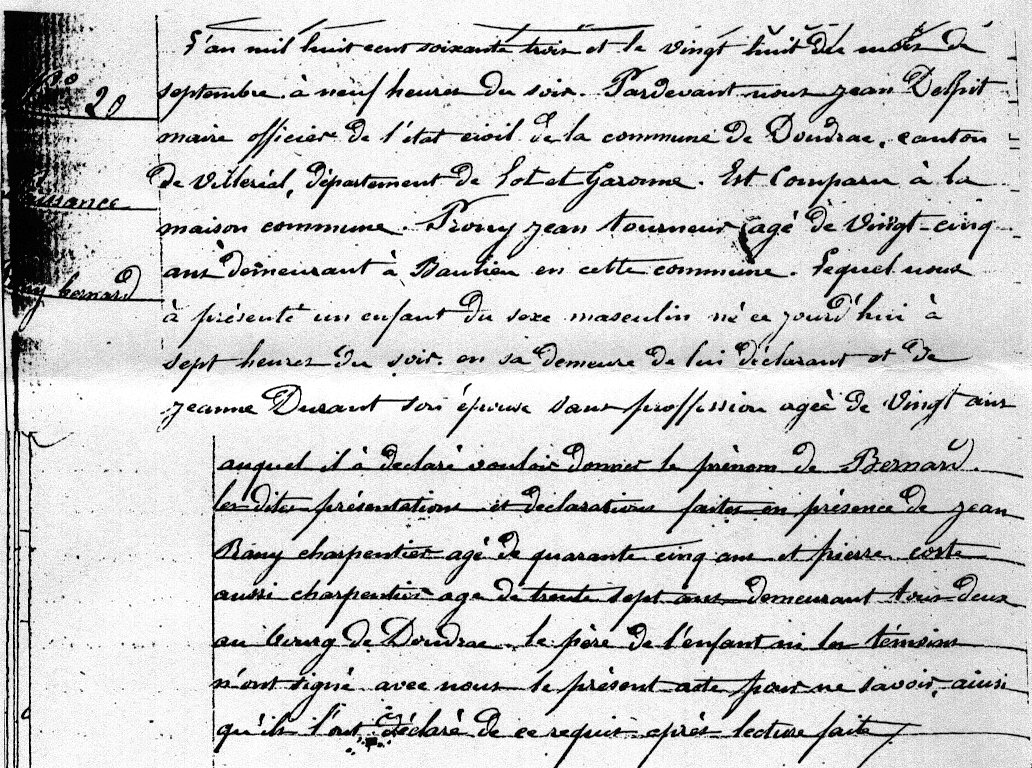 L'an mil huit cent soixante trois et le vingt huit du mois de
septembre à neuf heures du soir. Pardevant nous jean Delpit
maire officier de l'état civil de la commune de Doudrac, canton
de Villeréal, département de Lot et Garonne. Est Comparu à la
maison commune. jean tourneur agé de vingt-cinq
ans demeurant à en cette commune. Lequel nous
à présenté un enfant du sexe masculin né ce jourd'hui à
sept heures du soir en sa demeure de lui déclarant et de
jeanne Durant son épouse sans proffession agéé de vingt ans
auquel il à déclaré vouloir donner le prénom de Bernard.
les dites présentations et déclarations faites en présence de jean
charpentier agé de quarante cinq ans et pierre coste
aussi charpentier age de trente sept ans demeurant tous deux
au bourg de Doudrac le père de l'enfant ni les témoins
n'ont signé avec nous le présent acte pour ne savoir, ainsi
qu'ils l'ont déclaré de ce requis après lecture faite
N° 20
bernard